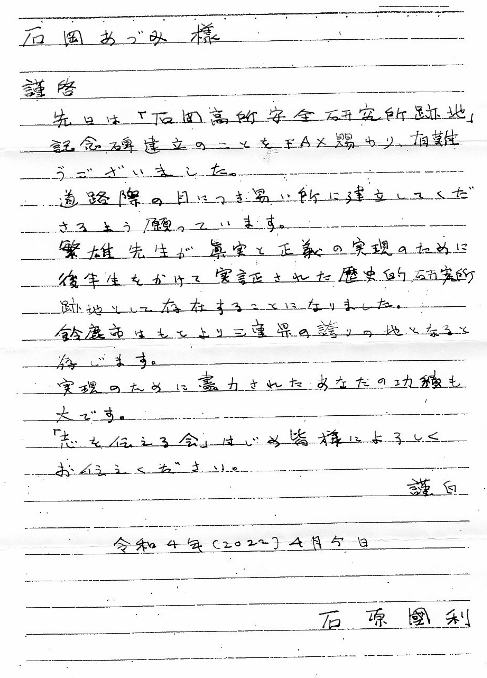 石岡あづみ様
謹啓
先日は「石岡高所安全研究所跡地」
記念碑建立のことをFAX賜わり、有難
うございました。
道路際の目につき易い所に建立してくだ
さるよう願っています。
繁雄先生が眞実と正義の実現のために
後半生をかけて実証された歴史的研究所
跡地として存在することになりました。
鈴鹿市はもとより三重県の誇りの地となると
存じます。
実現のために盡力されたあなたの功績も
大です。
「志を伝える会」はじめ皆様によろしく
お伝えください。
謹白
令和4年(2022)4月5日
石原國利